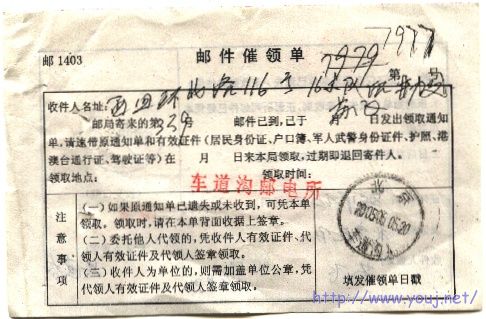 7977
邮件催领单
邮1403
7979
第 号
收件人名址:西四环北路116号16
邮局寄来的第339 邮件已到,已于 日发出领取通知
单,请速带原通知单和有效证件(居民身份证、户口簿、军人武警身份证件、护照、港
澳台通行证、驾驶证等)在 月 日来本局领取,过期即退回寄件人。
领取地点: 领取时间:
车道沟邮电所
注意事项
(一)如果原通知单已遗失或未收到,可凭本单
领取。领取时,请在本单背面收据上签章。
(二)委托他人代领的,凭收件人有效证件、代
领人有效证件及代领人签章领取。
(三)收件人为单位的,则需加盖单位公章,凭
代领人有效证件及代领人签章领取。
北京
填发催领单日戳
http://www.youj.net/